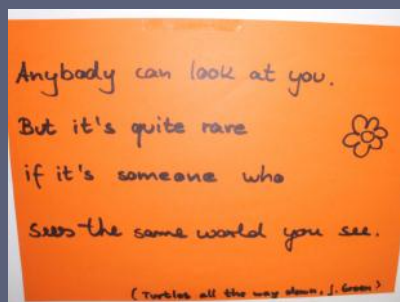 Anybody can look at you.
But it's quite rare
if it's someone who
sees the same world you see.
(Turtles all the way down, J. Green)